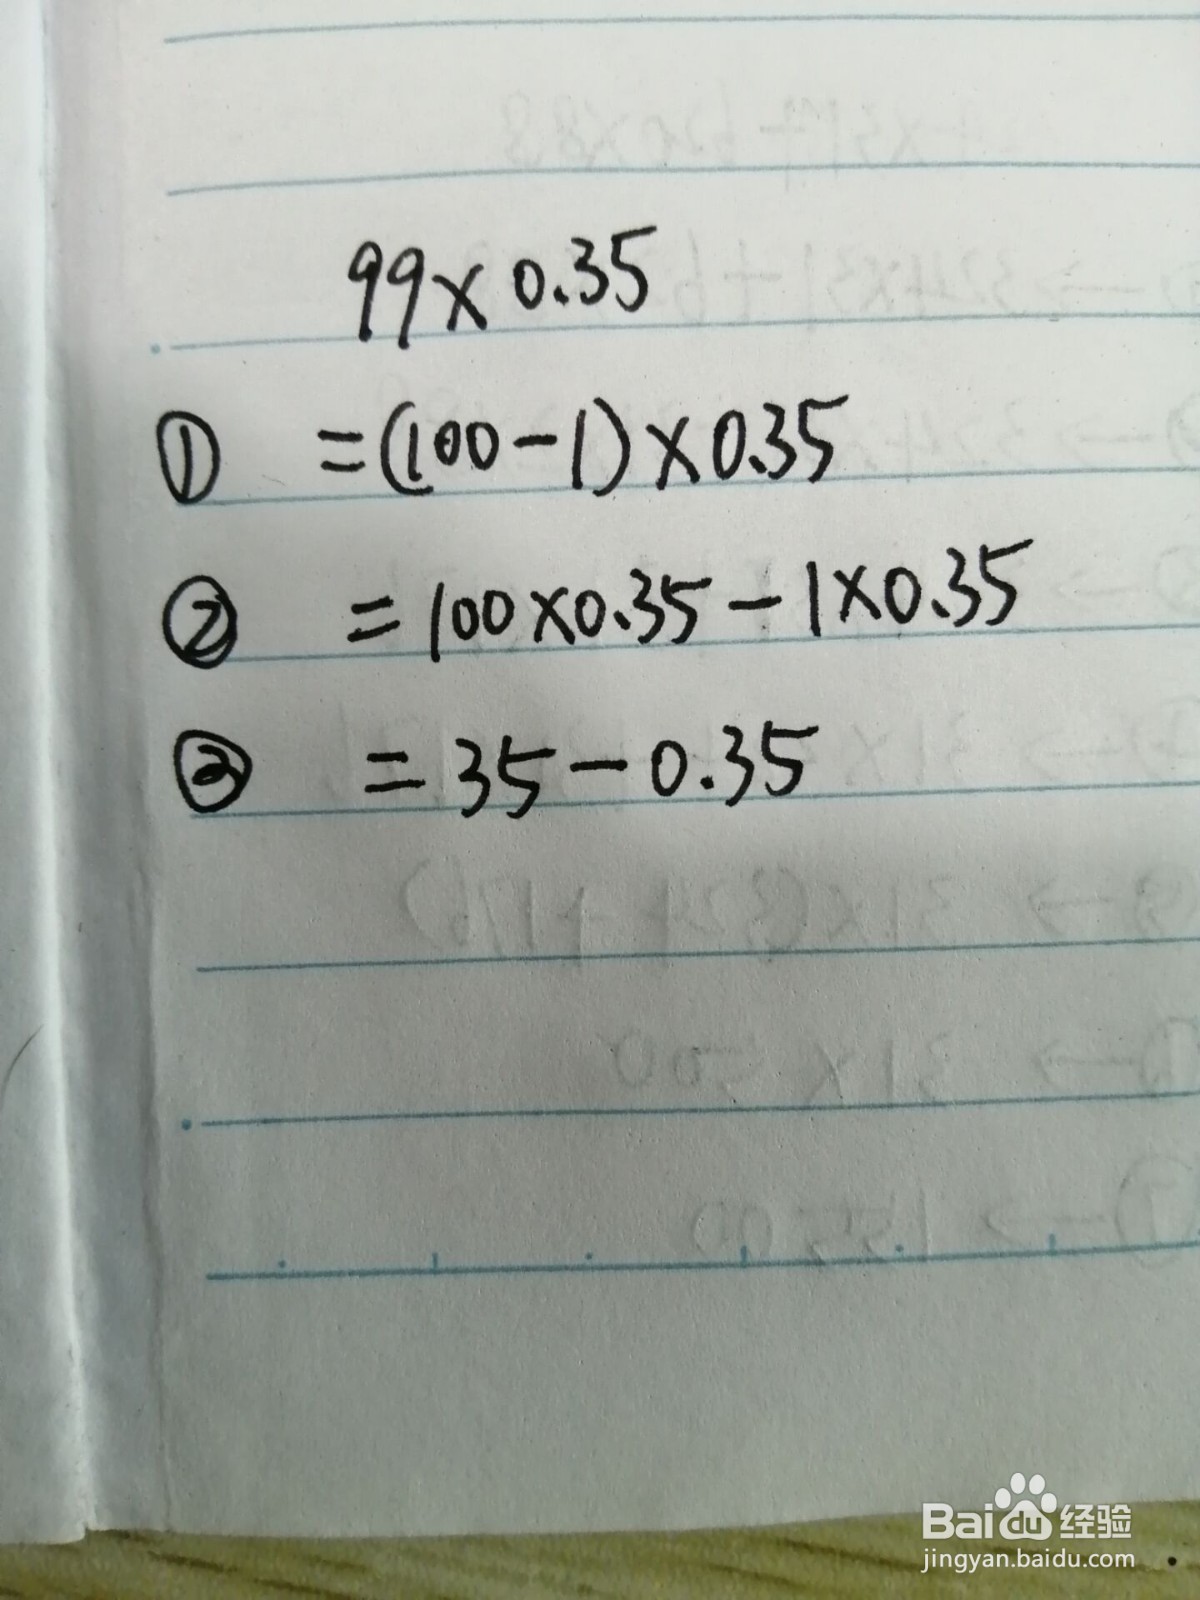 99×0.35
① =(100-1)×0.35
② =100×0.35-1×0.35
③ =35-0.35
Baidu经验
jingyan.baidu.com